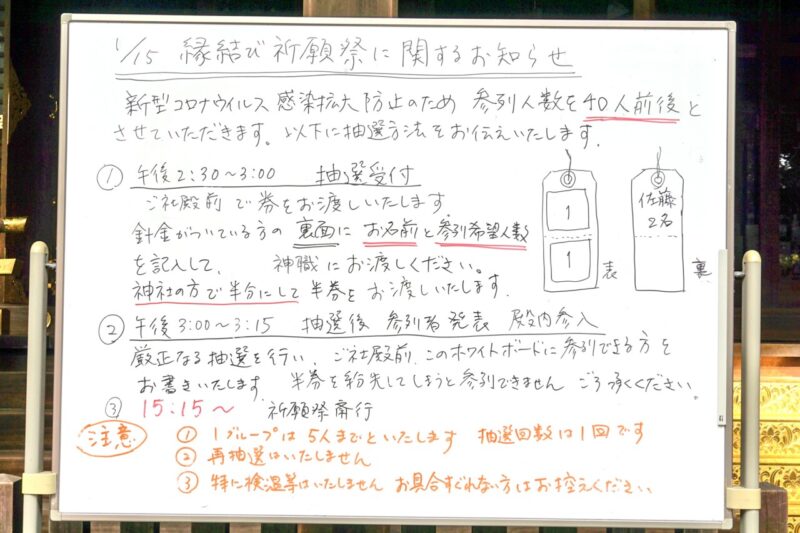 1/15 縁結び祈願祭に関するお知らせ
新型コロナウイルス感染拡大防止のため 参列人数を40人前後と
させていただきます。以下に抽選方法をお伝えいたします。
① 午後2:30～3:00 抽選受付
ご社殿前で券をお渡しいたします
針金がついている方の裏面にお名前と参列希望人数
を記入して、 神職にお渡しください。
神社の方で半分にして半券をお渡しいたします。
1
1
表
佐藤
2名
裏
② 午後3:00～3:15 抽選後 参列者発表 殿内参入
厳正なる抽選を行い、ご社殿前、このホワイトボードに参列できる方を
お書きいたします 半券を紛失してしまうと参列できません ご了承ください。
③ 15:15～ 祈願祭斎行
注意
① 1グループは5人までといたします 抽選回数は1回です
② 再抽選はいたしません
③ 特に検温等はいたしません お具合すぐれない方はお控えください